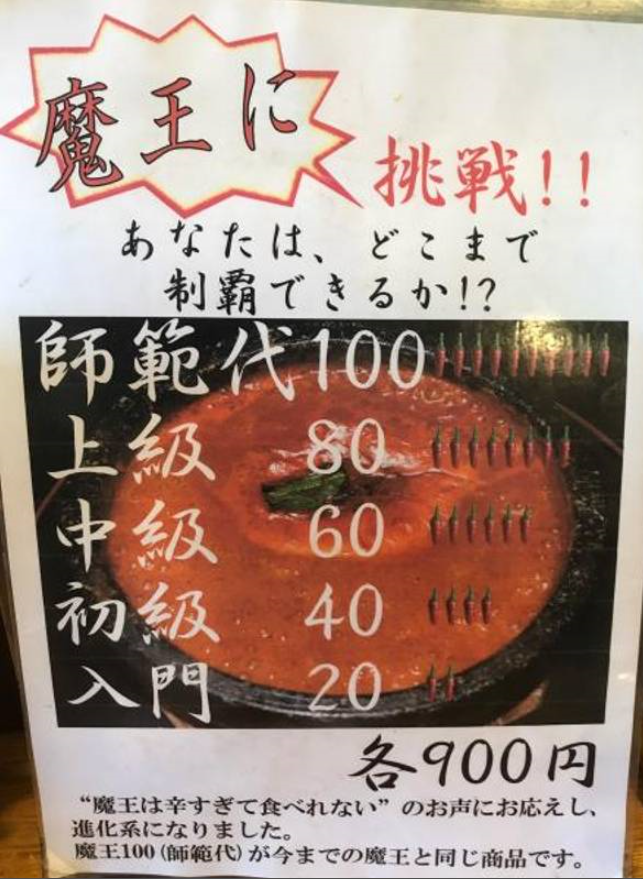 魔王に
挑戦!!
あなたは、どこまで
制覇できるか!?
師範代100
上級 80
中級 60
初級 40
入門 20
各900円
“魔王は辛すぎて食べれない”のお声にお応えし、
進化系になりました。
魔王100(師範代)が今までの魔王と同じ商品です。